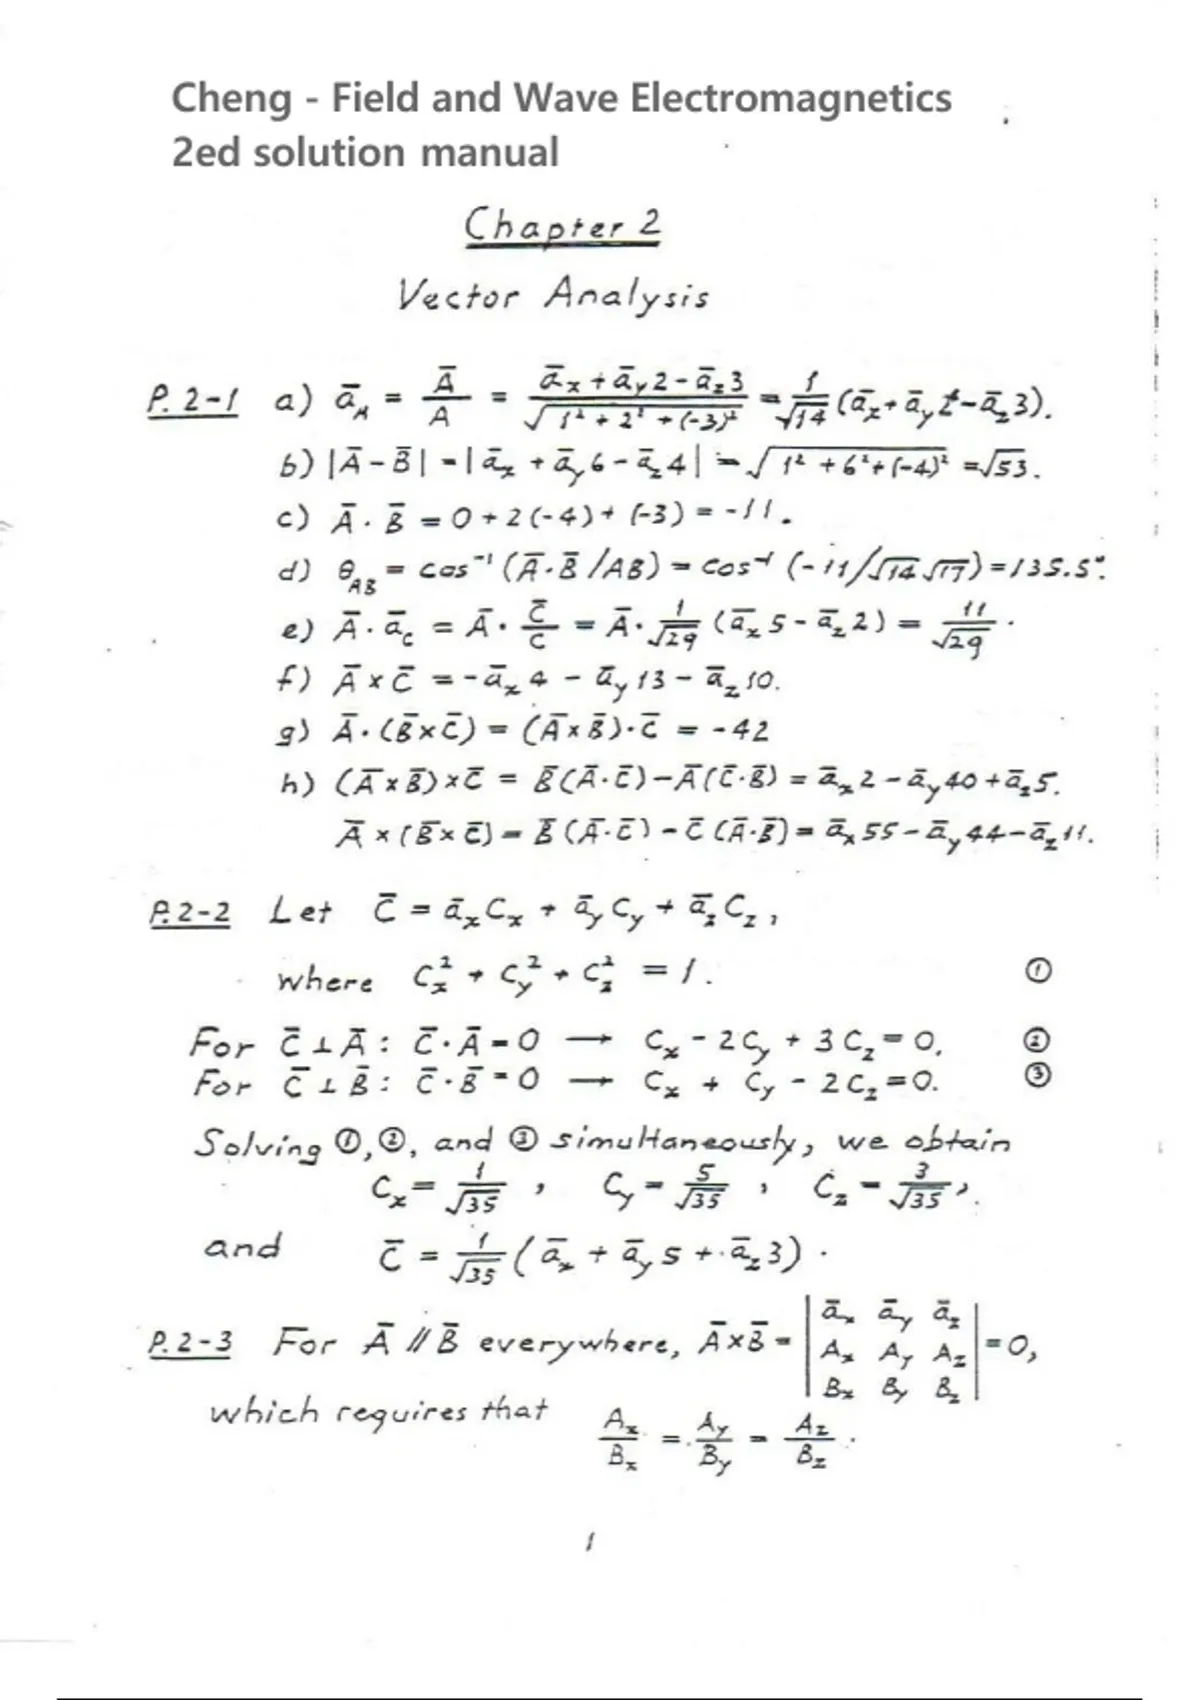 Cheng - Field and Wave Electromagnetics
2ed solution manual
Chapter 2
Vector Analysis
P. 2-1 a) ā_A = Ā/A = (ā_x + ā_y 2 - ā_z 3)/√(1² + 2² + (-3)²) = 1/√14 (ā_x + ā_y 2 - ā_z 3).
b) |Ā - B̄| = |ā_x + ā_y 6 - ā_z 4| = √(1² + 6² + (-4)²) = √53.
c) Ā · B̄ = 0 + 2(-4) + (-3) = -11.
d) θ_AB = cos⁻¹ (Ā·B̄/AB) = cos⁻¹ (-11/√14 √17) = 135.5°.
e) Ā · ā_c = Ā · C̄/C = Ā · 1/√29 (ā_x 5 - ā_z 2) = 11/√29.
f) Ā × C̄ = -ā_x 4 - ā_y 13 - ā_z 10.
g) Ā · (B̄ × C̄) = (Ā × B̄) · C̄ = -42
h) (Ā × B̄) × C̄ = B̄(Ā·C̄) - Ā(C̄·B̄) = ā_x 2 - ā_y 40 + ā_z 5.
Ā × (B̄ × C̄) = B̄(Ā·C̄) - C̄(Ā·B̄) = ā_x 55 - ā_y 44 - ā_z 11.
P. 2-2 Let C̄ = ā_x C_x + ā_y C_y + ā_z C_z,
where C_x² + C_y² + C_z² = 1. ①
For C̄ ⊥ Ā: C̄ · Ā = 0 → C_x - 2C_y + 3C_z = 0. ②
For C̄ ⊥ B̄: C̄ · B̄ = 0 → C_x + C_y - 2C_z = 0. ③
Solving ①, ②, and ③ simultaneously, we obtain
C_x = 1/√35, C_y = 5/√35, C_z = 3/√35,
and C̄ = 1/√35 (ā_x + ā_y 5 + ā_z 3).
P. 2-3 For Ā // B̄ everywhere, Ā × B̄ = | ā_x ā_y ā_z ; A_x A_y A_z ; B_x B_y B_z | = 0,
which requires that A_x/B_x = A_y/B_y = A_z/B_z.
1